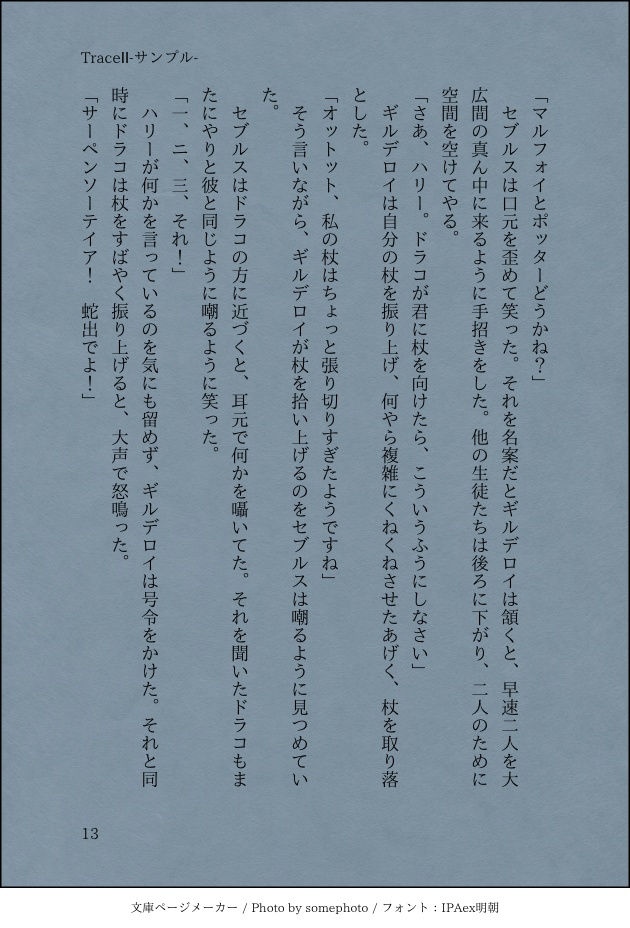 TraceⅡ-サンプル-
「マルフォイとポッターどうかね？」
　セブルスは口元を歪めて笑った。それを名案だとギルデロイは頷くと、早速二人を大
広間の真ん中に来るように手招きをした。他の生徒たちは後ろに下がり、二人のために
空間を空けてやる。
「さあ、ハリー。ドラコが君に杖を向けたら、こういうふうにしなさい」
　ギルデロイは自分の杖を振り上げ、何やら複雑にくねくねさせたあげく、杖を取り落
とした。
「オットット、私の杖はちょっと張り切りすぎたようですね」
　そう言いながら、ギルデロイが杖を拾い上げるのをセブルスは嘲るように見つめてい
た。
　セブルスはドラコの方に近づくと、耳元で何かを囁いてた。それを聞いたドラコもま
たにやりと彼と同じように嘲るように笑った。
「一、二、三、それ！」
　ハリーが何かを言っているのを気にも留めず、ギルデロイは号令をかけた。それと同
時にドラコは杖をすばやく振り上げると、大声で怒鳴った。
「サーペンソーテイア！　蛇出でよ！」
13
文庫ページメーカー / Photo by somephoto / フォント：IPAex明朝